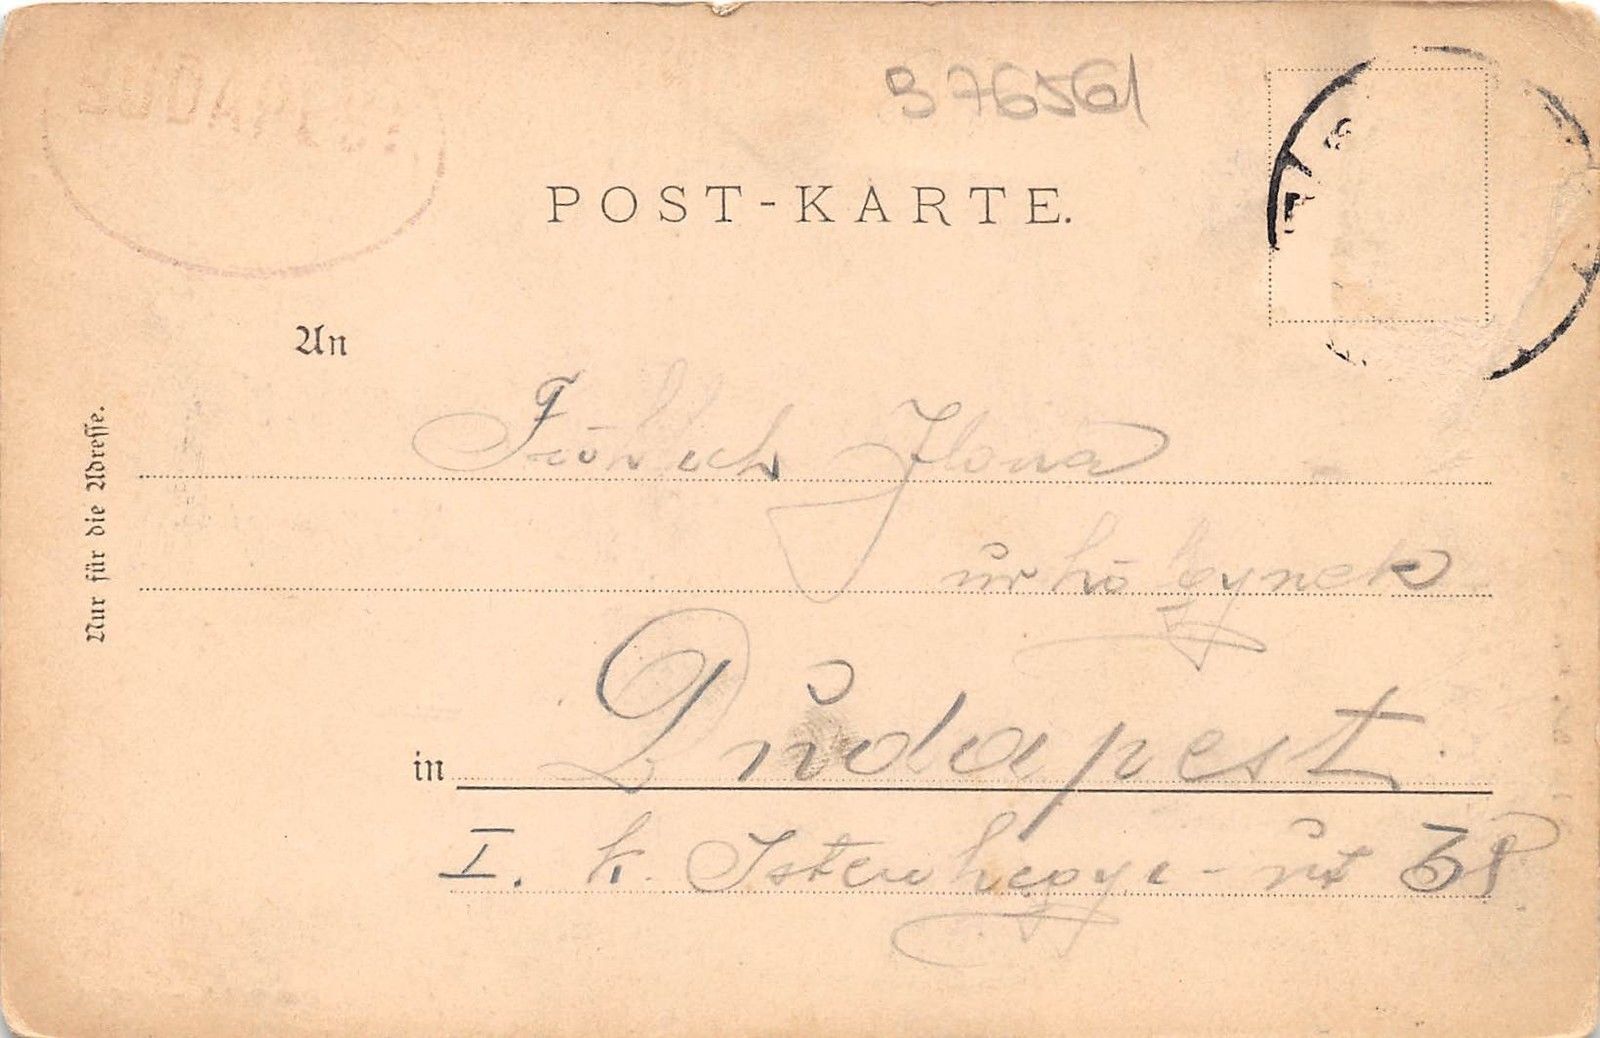 976561
POST-KARTE.
An
Nur für die Adresse.
Fröhlich Ilona
úrhölgynek
in Budapest
I. k. Istenhegyi-út